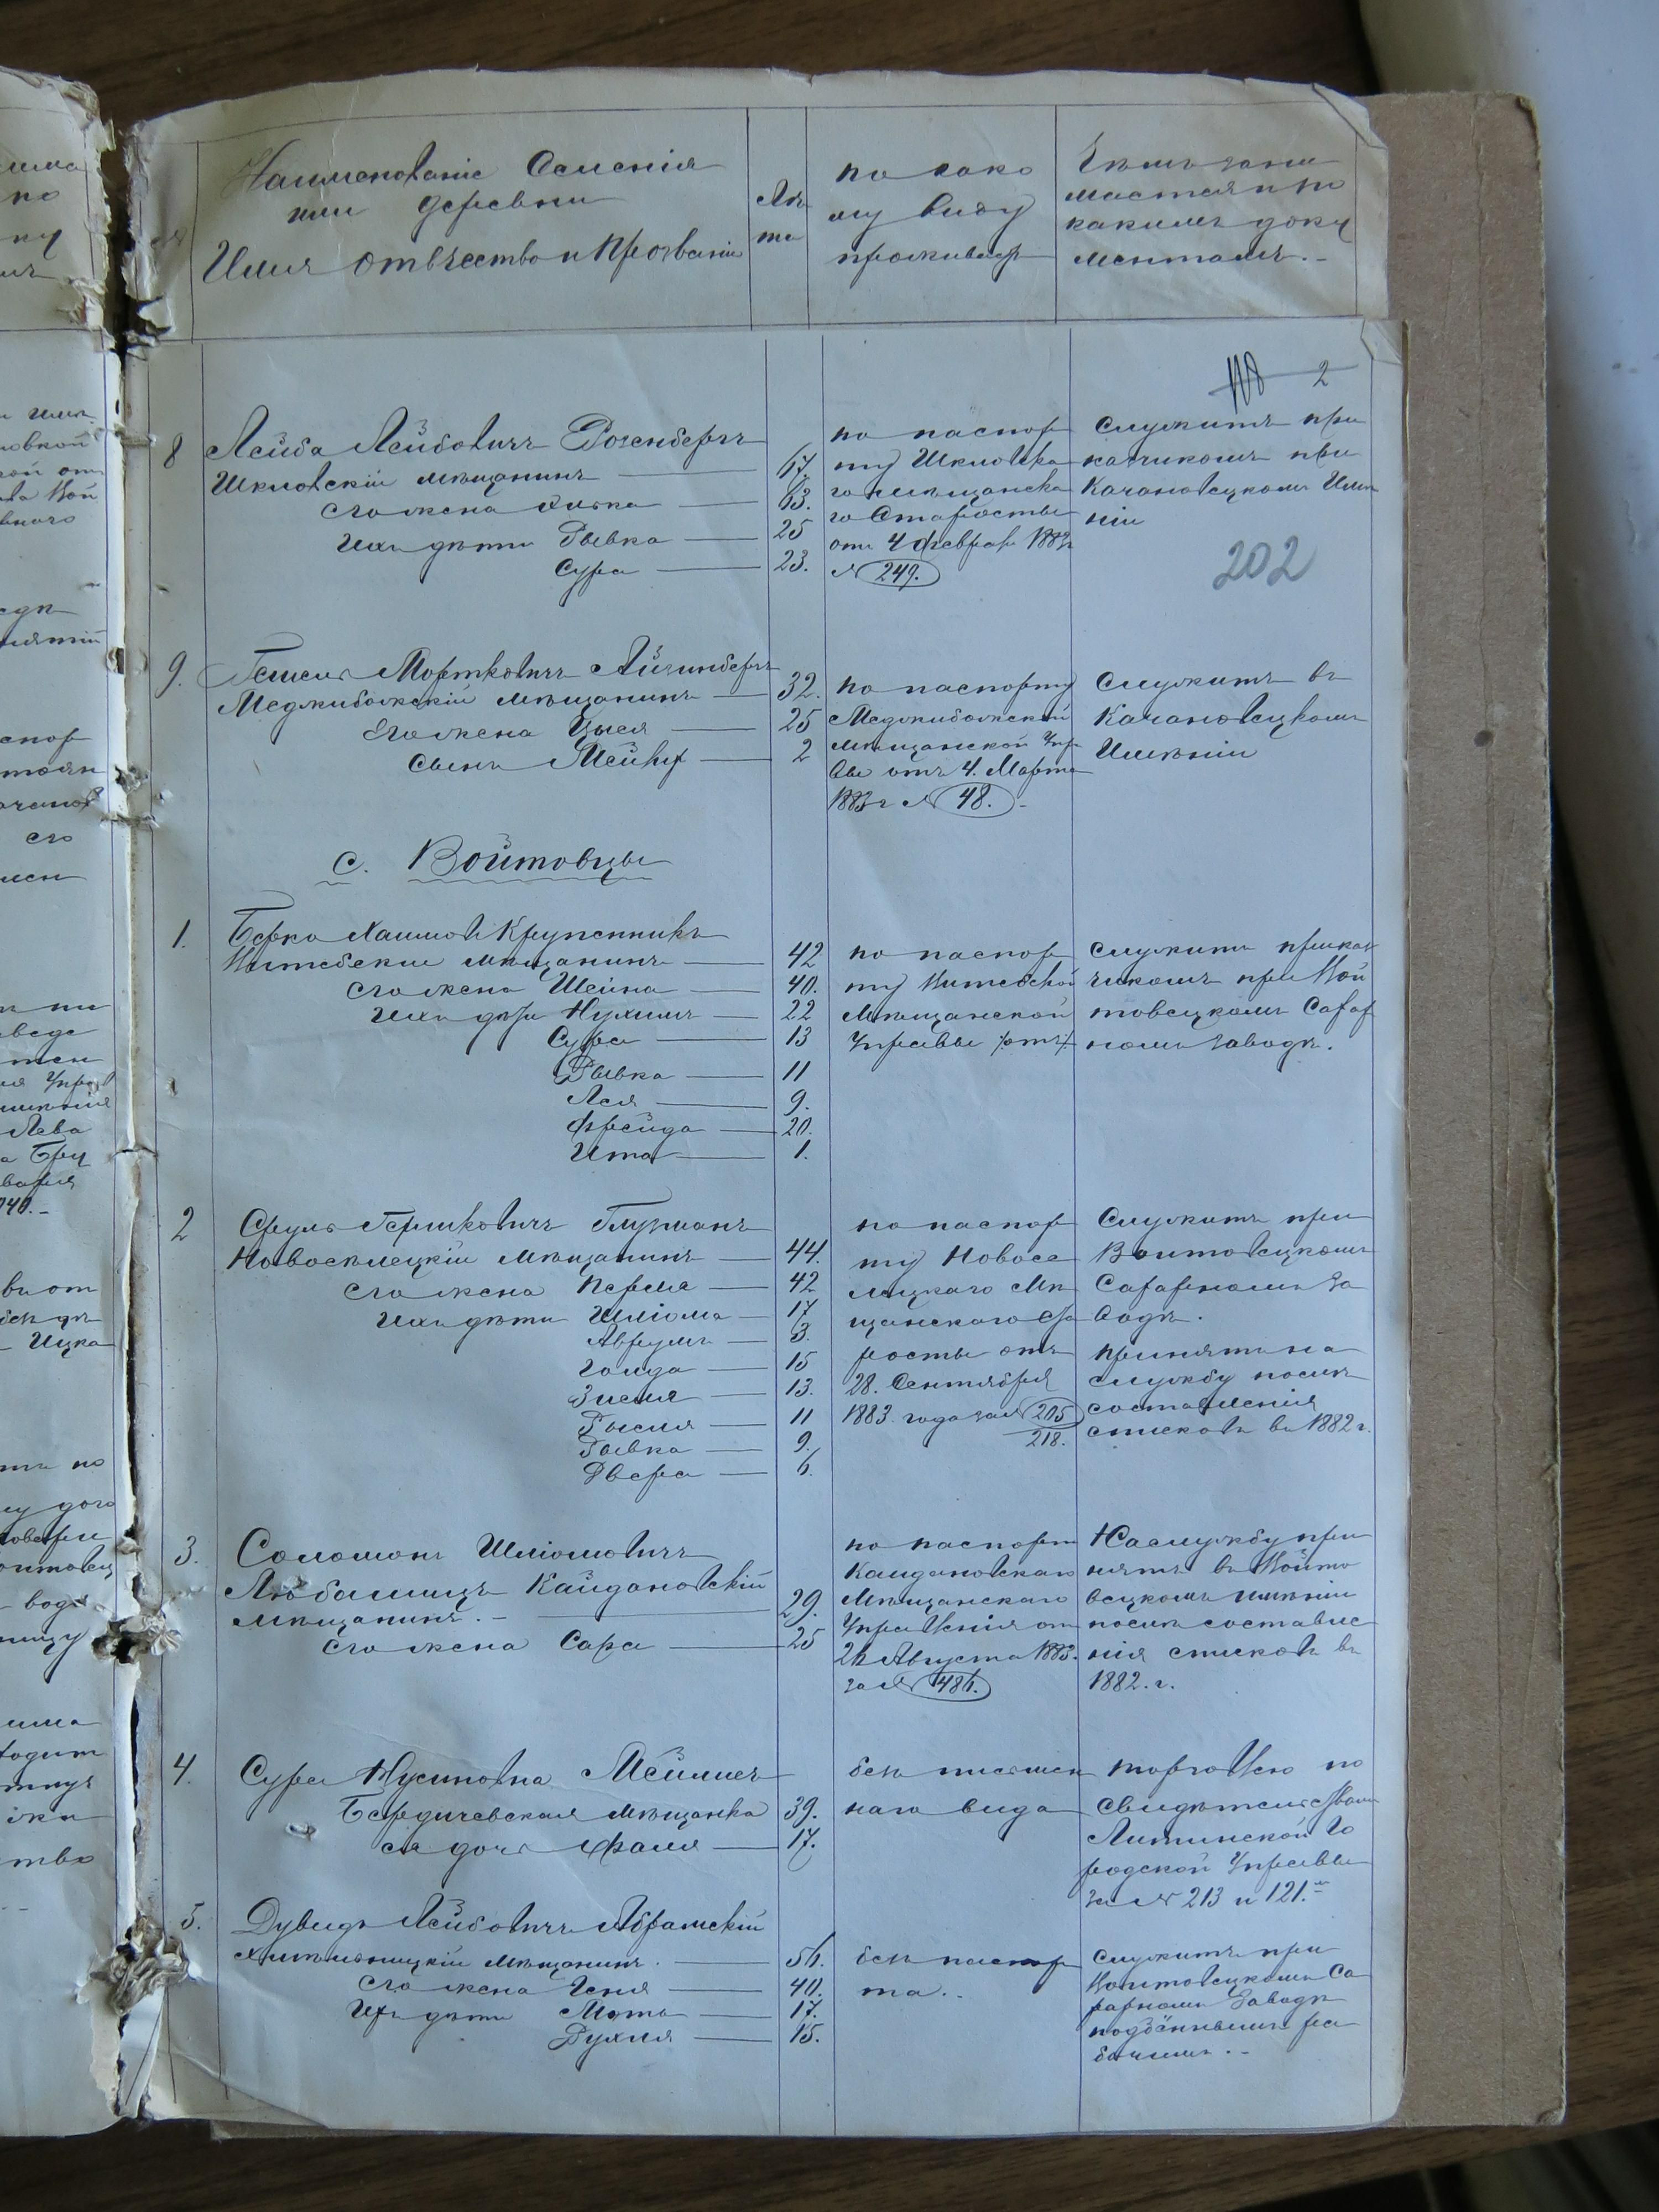 Наименованіе Селенія
или деревни
Имя отвѣчество и Прозваніе
Лѣ
та
по како
му виду
проживаетъ
Чѣмъ зани
мается и по
какимъ доку
ментамъ.-
2
8 Лейба Лейбовичъ Розенберъ
Шкловскій мѣщанинъ 67
его жена Хаска 63.
Ихъ дѣти Рывка 25
Сура 23.
по паспор
ту Шкловска
го мѣщанска
го Старосты
отъ 4 февраля 1883г
№ 249.
Служитъ при
кащикомъ при
Качановецкомъ Имѣ
ніи
202
9. Мортковичъ Айзинберъ
Меджибожскій мѣщанинъ 32.
Его жена Цыся 25
Сынъ Мейнех 2
по паспорту
Меджибожской
мѣщанской Упра
вы отъ 4. Марта
1883 г № 48.-
Служитъ въ
Качановецкомъ
Имѣніи
с. Войтовцы
1. Берко Хаимов Крупенникъ
Витебскіе мѣщанинъ 42
его жена Шейна 40.
Ихъ дѣти Нухимъ 22
Сура 13
Рывка 11
Лея 9.
Фрейда 20.
Ита 1.
по паспор
ту Витебской
Мѣщанской
Управы /отъ/
служитъ прикащ
чикомъ при Вой
товецкомъ Сахар
номъ заводѣ.
2 Сруль Гершковичъ Глузманъ
Новоселецкій мѣщанинъ 44.
его жена Перля 42
Ихъ дѣти Шліома 17
Аврумъ 3.
Голда 15
Зисля 13.
Рысля 11
Рывка 9.
Двера 6.
по паспор
ту Новосе
лецкаго Мѣ
щанскаго Ста
росты отъ
28. Сентября
1883 года за № 205
218.
Служитъ при
Войтовецкомъ
Сахарномъ За
водѣ.
принятъ на
службу послѣ
составленія
списковъ въ 1882 г.
3. Соломонъ Шліомовичъ
Любашицъ Кайдановскій
мѣщанинъ.- 29.
его жена Сара 25
по паспорт
Кайдановскаго
Мѣщанскаго
Управленія от
22 Августа 1883.
за № 486.
На службу при
нятъ въ Войто
вецкомъ имѣніи
послѣ составле
нія списковъ въ
1882. г.
4. Сура Нусиновна Мейлиш
Бердичевская мѣщанка 39.
ея дочь Фаля 17.
безъ письмен
наго вида
торговлею по
свидѣтельствам
Литинской Го
родской Управы
за № 213 и 121.-
5. Дувидъ Лейбовичъ Абрамскій
Хмельницкій мѣщанинъ. 56.
его жена Геня 40.
Ихъ дѣти Мота 17.
Рухля 15.
безъ паспор
та..
служитъ при
Войтовецкомъ Са
харномъ Заводѣ
подённымъ ра
бочимъ.-